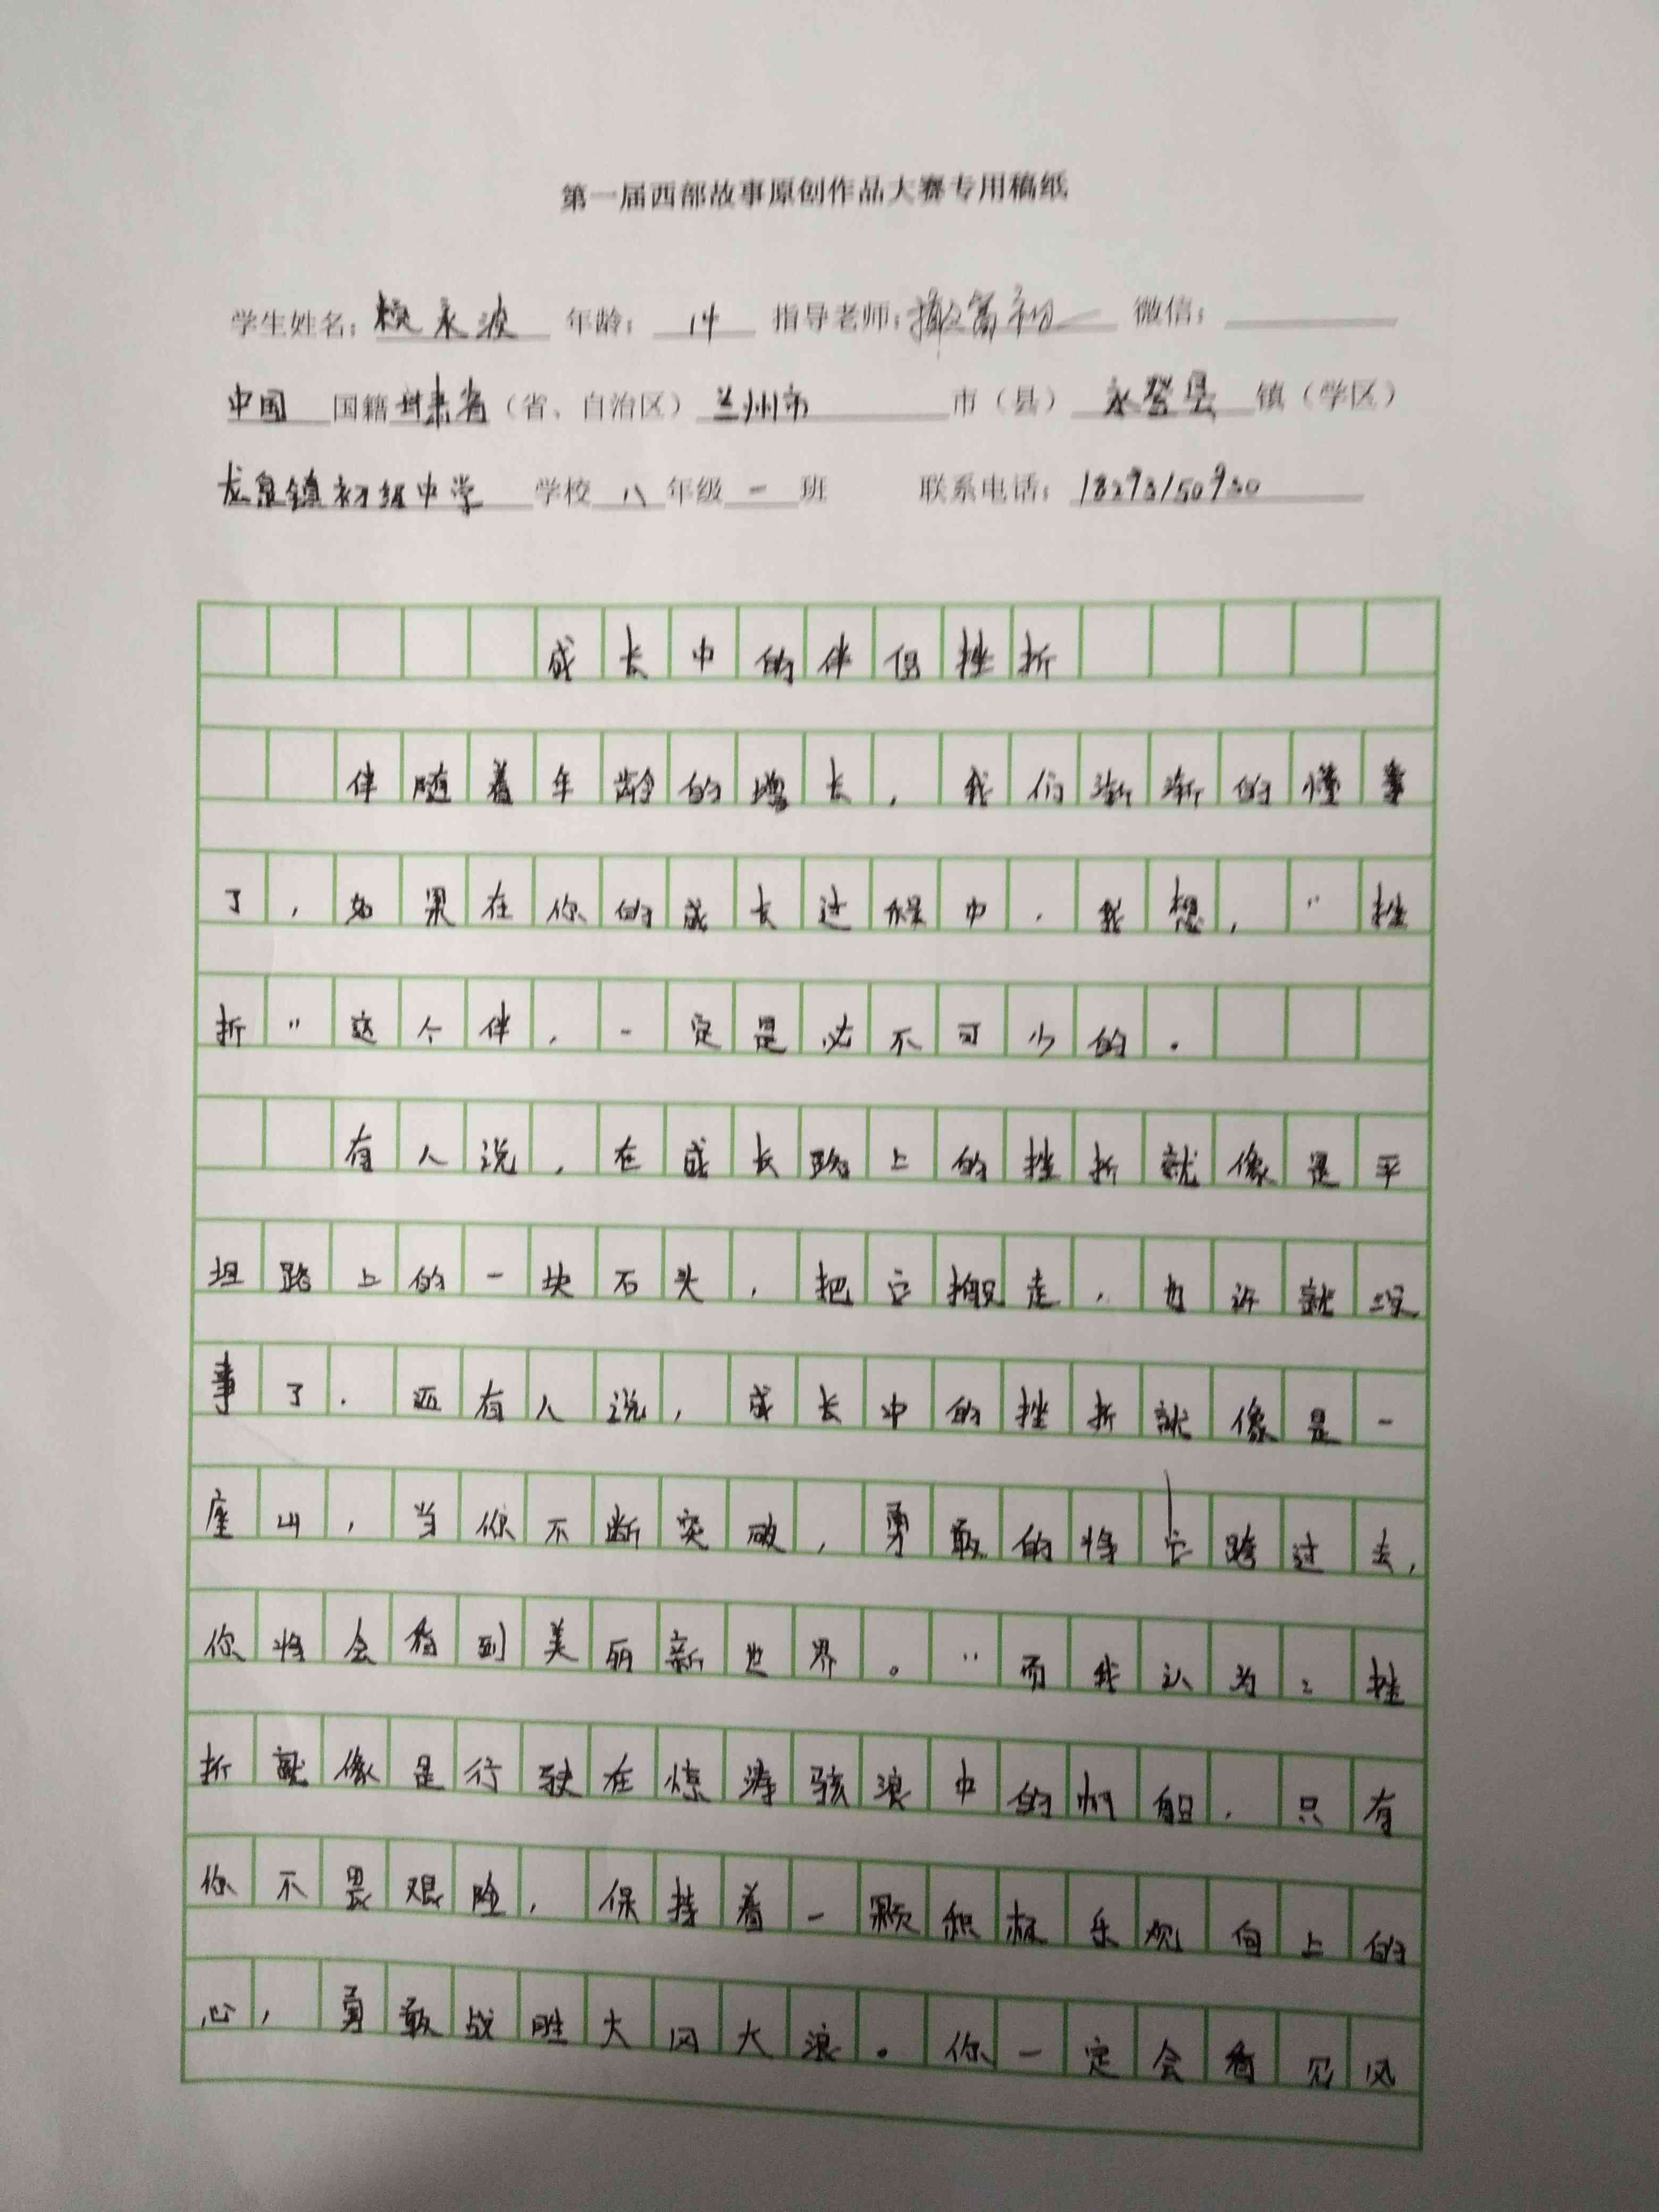 第一届西部故事原创作品大赛专用稿纸
学生姓名： 永波 年龄： 14 指导老师： 微信：
中国 国籍 甘肃省（省、自治区）兰州市 市（县） 永登县 镇（学区）
龙泉镇初级中学 学校 八 年级 一 班 联系电话：
成长中的伴侣挫折
伴随着年龄的增长，我们渐渐的懂事
了，如果在你的成长过程中，我想，“挫
折”这个伴，一定是必不可少的。
有人说，在成长路上的挫折就像是平
坦路上的一块石头，把它搬走，也许就没
事了．还有人说，成长中的挫折就像是一
座山，当你不断突破，勇敢的将它跨过去，
你将会看到美丽新世界。”而我认为：挫
折就像是行驶在惊涛骇浪中的帆船，只有
你不畏艰险，保持着一颗积极乐观向上的
心，勇敢战胜大风大浪。你一定会看见风